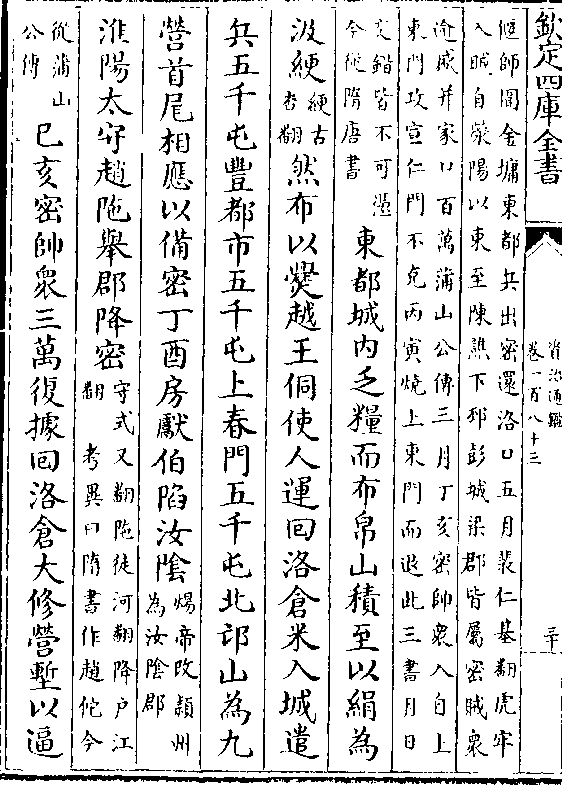 欽定四庫全書
資治通鑑
卷一百八十三
三十
偃師圍金墉東都兵出密還洛口五月裴仁基翻虎牢
入賊自滎陽以東至陳譙下邳彭城梁郡皆屬密賊衆
逾盛并家口百萬蒲山公傳三月丁亥密帥衆入自上
東門攻宣仁門不克丙寅燒上東門而退此三書月日
交錯皆不可㨿
今從隋唐書
東都城内乏糧而布帛山積至以絹為
汲綆
綆古
杏翻
然布以爨越王侗使人運回洛倉米入城遣
兵五千屯豐都市五千屯上春門五千屯北邙山為九
營首尾相應以備密丁酉房獻伯陷汝隂
煬帝改頴州
為汝隂郡
淮陽太守趙陁舉郡降密
守式又翻陁徒河翻降户江
翻 考異曰隋書作趙佗今
從蒲山
公傳
己亥密帥衆三萬復據回洛倉大修營塹以逼